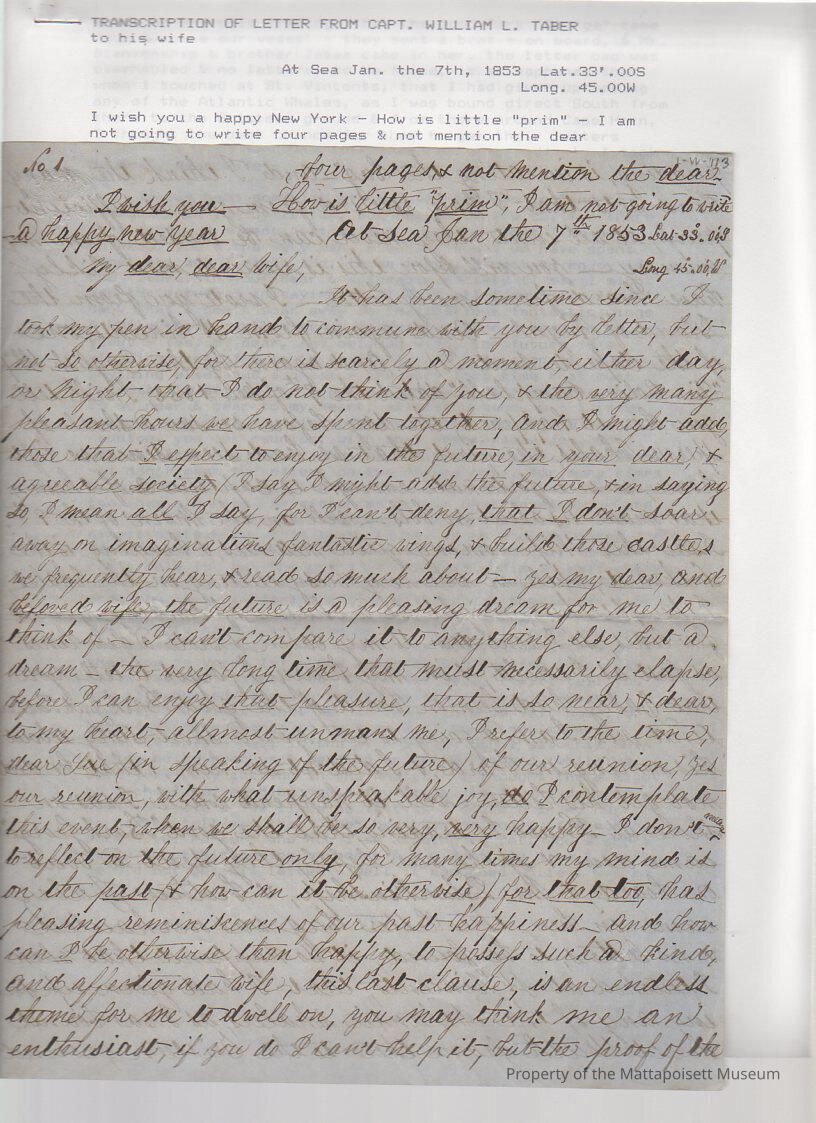 TRANSCRIPTION OF LETTER FROM CAPT. WILLIAM L. TABER
to his wife
At Sea Jan. the 7th, 1853 Lat.33'.00S
Long. 45.00W
I wish you a happy New York - How is little "prim" - I am
not going to write four pages & not mention the dear
No 1
four pages & not mention the dear
I wish you — How is little "prim", I am not going to write
a happy new year At sea Jan the 7th 1853 Lat 33°.00,S
My dear, dear wife, Long 45°.00,W
It has been sometime since I
took my pen in hand to commune with you by letter, but
not so otherwise, for there is scarcely a moment, either day,
or night that I do not think of you, & the very many
pleasant hours we have spent together, and I might add,
those that I expect to enjoy in the future, in your dear, &
agreeable society (I say I might add the future, & in saying
so, I mean all I say, for I can't deny, that I don't soar
away on imaginations fantastic wings, & build those castles
we frequently hear, & read so much about — yes my dear, and
beloved wife, the future is a pleasing dream for me to
think of — I can't compare it to anything else, but a
dream — the very long time that must necessarily elapse,
before I can enjoy that pleasure, that is so near, & dear,
to my heart, allmost unmans me, I refer to the time,
dear Sue (in speaking of the future) of our reunion, yes
our reunion, with what unspeakable joy, do I contemplate
this event, when we shall be so very, very happy — I don't mean
to reflect on the future only, for many times my mind is
on the past (& how can it be otherwise) for that too, has
pleasing reminiscences of our past happiness — and how
can I be otherwise than happy, to possess such a kind,
and affectionate wife, this last clause, is an endless
theme for me to dwell on, you may think me an
enthusiast, if you do I can't help it, but the proof of the
1-W-713
Property of the Mattapoisett Museum